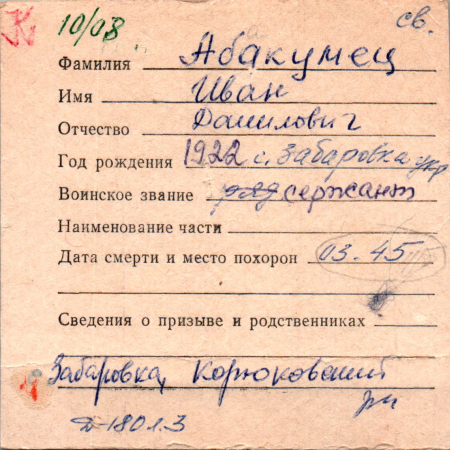 К 10/03 св.
Фамилия Абакумец
Имя Иван
Отчество Данилович
Год рождения 1922 с. Забаровка укр
Воинское звание ряд сержант
Наименование части
Дата смерти и место похорон 03.45
Сведения о призыве и родственниках
Забаровка, Корюковский
рн
Д-180 л.3